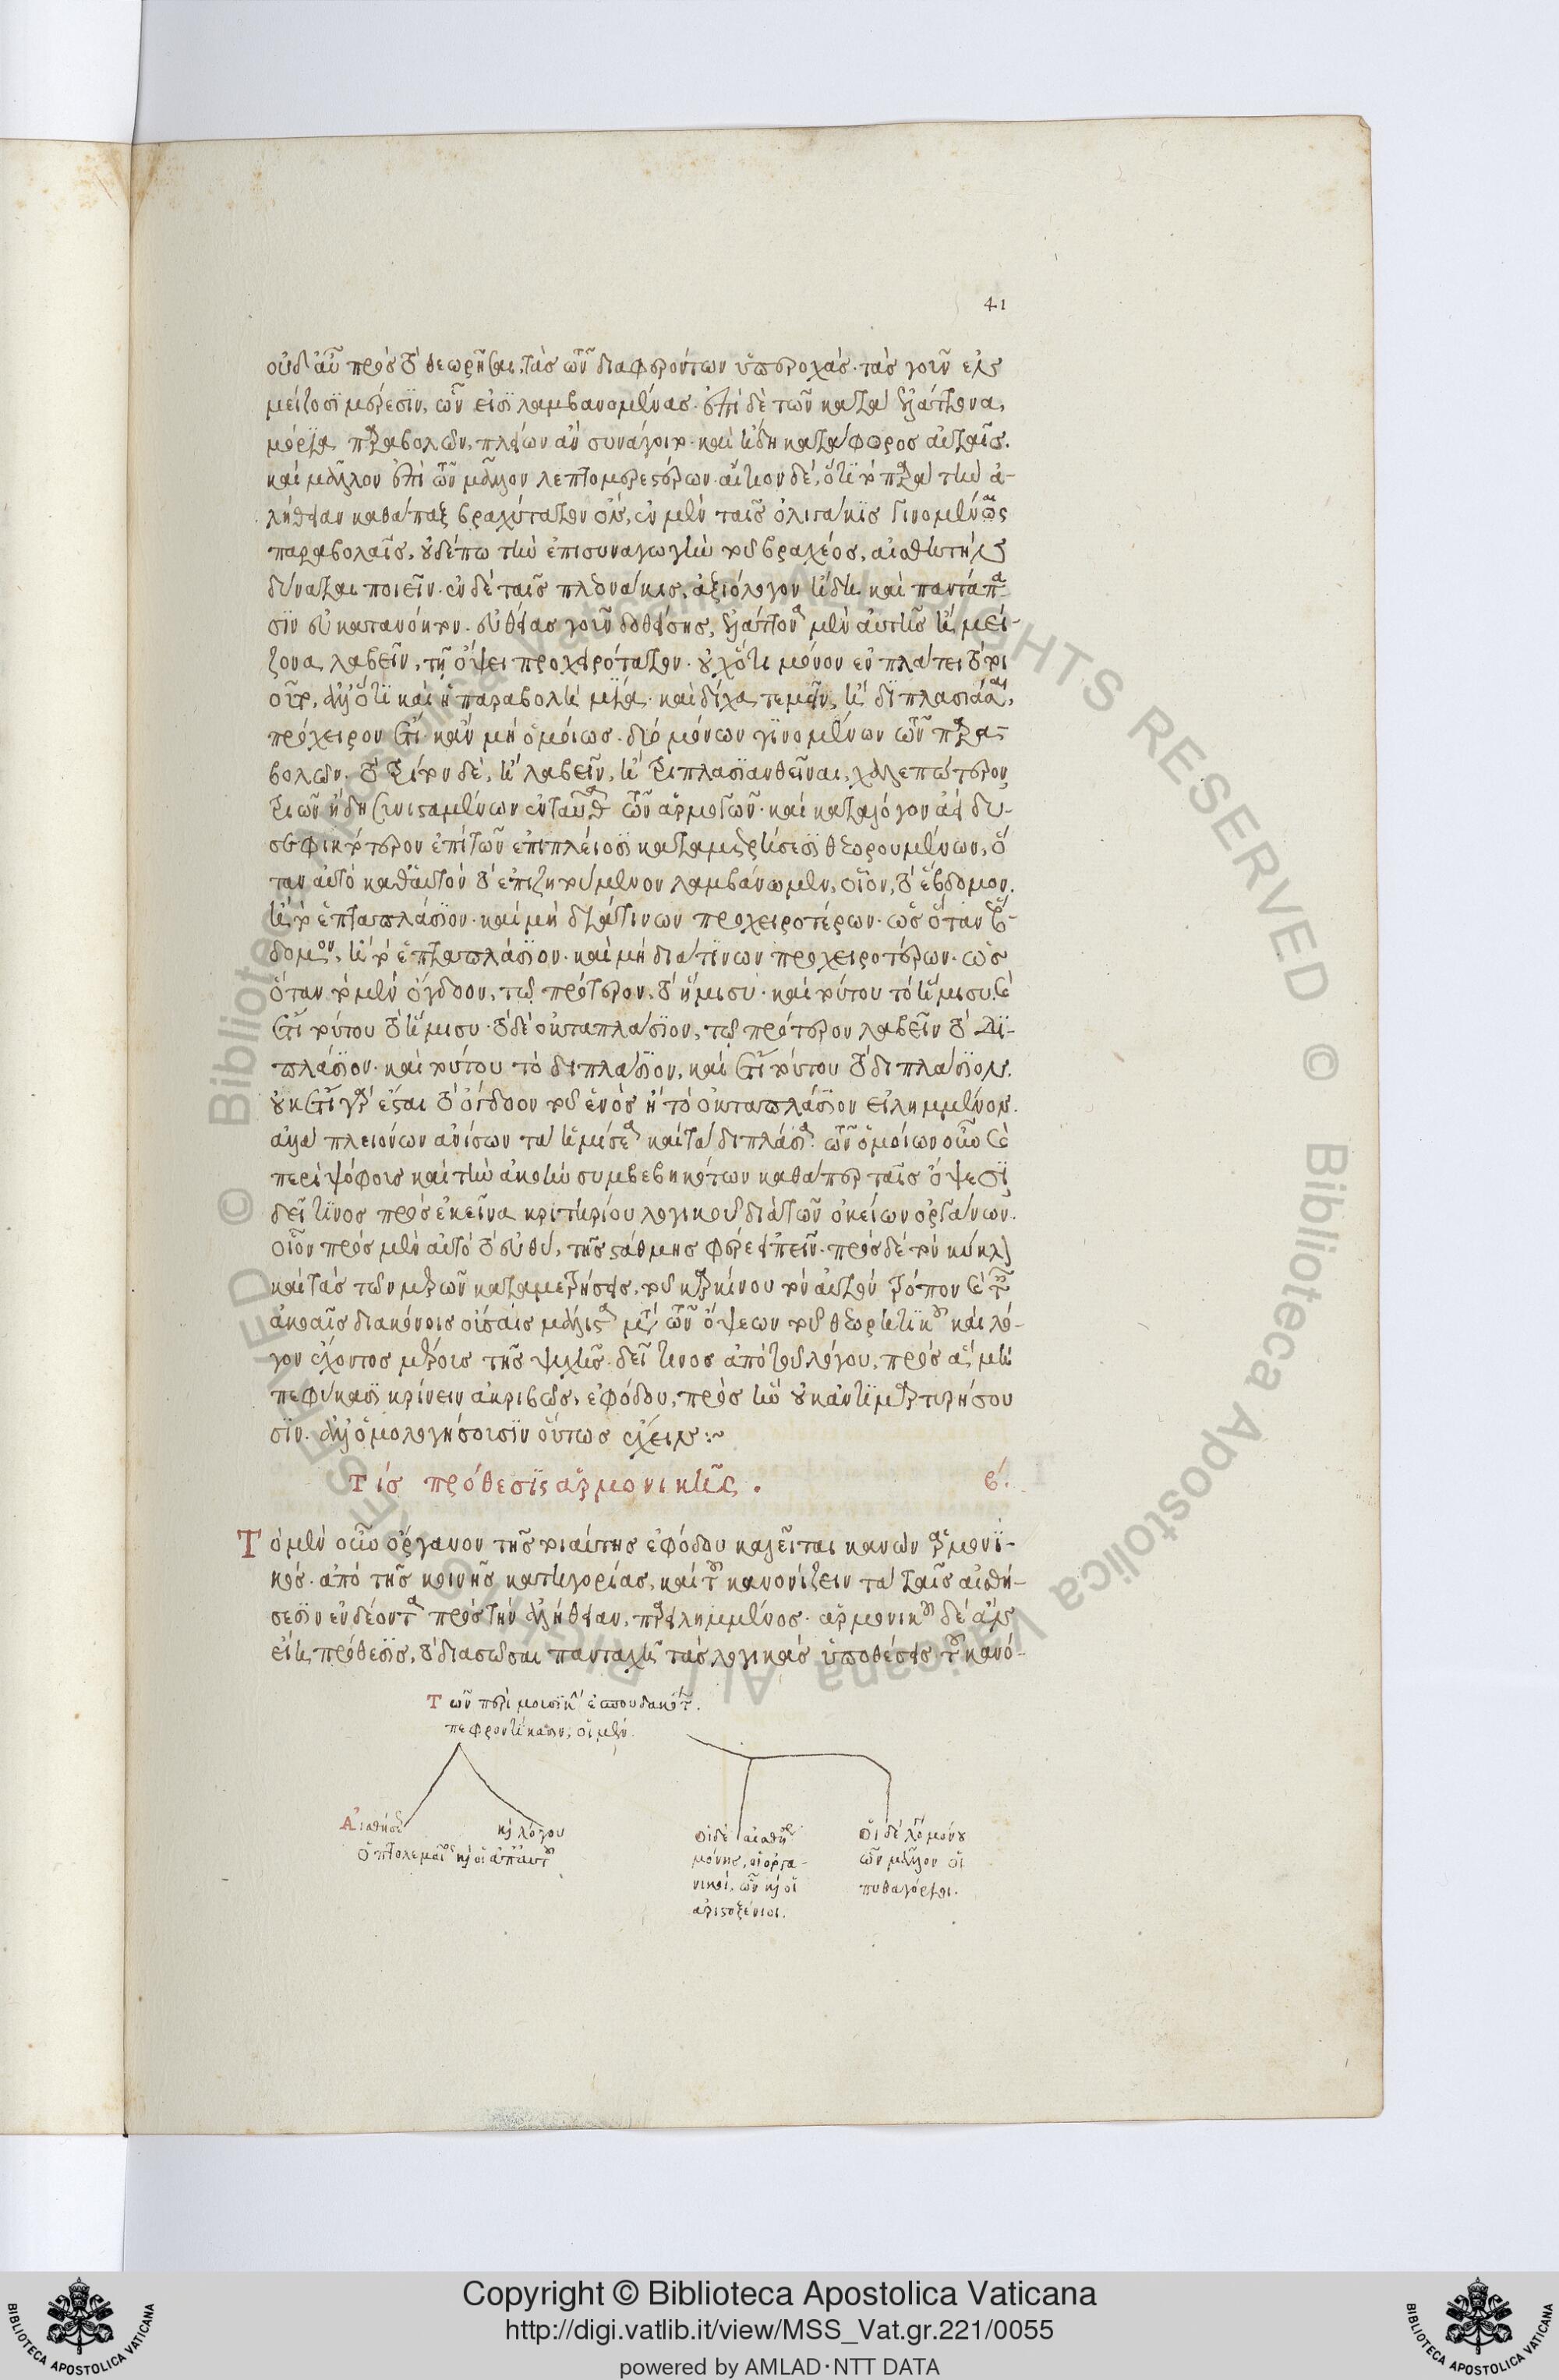 41
οὐδ' αὖ πρὸς τὸ θεωρῆσαι τὰς τῶν διαφερόντων ὑπεροχάς. τὰς γοῦν ἐν
μείζοσι μέρεσιν, ὧν εἰσι λαμβανομένας. ἐπὶ δὲ τῶν κατὰ ἐλάττονα
μόρια παραβολῶν, πλείων ἂν συνάγοιτο καὶ ἤδη κατάφωρος αὐταῖς.
καὶ μᾶλλον ἐπὶ τῶν μᾶλλον λεπτομερεστέρων. αἴτιον δέ, ὅτι τὸ παρὰ τὴν ἀ-
λήθειαν καθάπαξ βραχύτατον ὂν, ἐν μὲν ταῖς ὀλιγάκις γινομέναις
παραβολαῖς, οὐδέπω τὴν ἐπισυναγωγὴν τοῦ βραχέος, αἰσθητὴν
δύναται ποιεῖν. ἐν δὲ ταῖς πλεονάκις, ἀξιόλογον ἤδη καὶ παντάπα
σιν εὐκατανόητον. εὐθείας γοῦν δοθείσης, ἐλάττονα μὲν αὐτῆς ἢ μεί-
ζονα λαβεῖν, τῇ ὄψει προχειρότατον. οὐχ ὅτι μόνον ἐν πλάτει τὸ τοι
οῦτο, ἀλλ' ὅτι καὶ ἡ παραβολὴ μία. καὶ δίχα τεμεῖν, ἢ διπλασιάσαι,
πρόχειρον ἔτι. κἂν μὴ ὁμοίως. δύο μόνων γινομένων τῶν παρα-
βολῶν. τὸ τρίτον δὲ, ἢ λαβεῖν, ἢ τριπλασιασθεῖναι, χαλεπώτερον
τριῶν ἤδη συνισταμένων ἐνταῦθα τῶν ἁρμογῶν. καὶ κατὰ λόγον ἀεὶ δυ-
σεφικτότερον ἐπὶ τῶν ἐπιπλείοσι καταμετρήσεσι θεωρουμένων, ὅ
ταν αὐτὸ καθ' αὑτὸ τὸ ἐπιζητούμενον λαμβάνωμεν, οἷον, τὸ ἕβδομον.
ἢ τὸ ἑπταπλάσιον. καὶ μὴ διά τινων προχειροτέρων. ὡς ὅταν ἕβ-
δομον, ἢ τὸ ἑπταπλάσιον. καὶ μὴ διά τινων προχειροτέρων. ὡς
ὅταν τὸ μὲν ὄγδοον, τῷ πρότερον, τὸ ἥμισυ. καὶ τούτου τὸ ἥμισυ. καὶ
ἔτι τούτου τὸ ἥμισυ. τὸ δὲ ὀκταπλάσιον, τῷ πρότερον λαβεῖν τὸ δι-
πλάσιον. καὶ τούτου τὸ διπλάσιον, καὶ ἔτι τούτου τὸ διπλάσιον.
οὐκέτι γὰρ ἔσται τὸ ὄγδοον τοῦ ἑνὸς ἢ τὸ ὀκταπλάσιον εἰλημμένον.
ἀλλὰ πλειόνων ἀνίσων τὰ ἡμίσεα καὶ τὰ διπλάσια. τῶν ὁμοίων οὖν καὶ
περὶ ψόφοις καὶ τὴν ἀκοὴν συμβεβηκότων καθάπερ ταῖς ὄψεσι
δεῖ τινος πρὸς ἐκεῖνα κριτηρίου λογικοῦ διὰ τῶν οἰκείων ὀργάνων.
οἷον πρὸς μὲν αὐτὸ τὸ εὐθὺ, τῆς στάθμης φέρε εἰπεῖν. πρὸς δὲ τὸν κύκλον
καὶ τὰς τῶν μερῶν καταμετρήσεις, τοῦ καρκίνου τὸν αὐτὸν τρόπον καὶ ταῖς
ἀκοαῖς διακόνοις οὔσαις μάλιστα μετὰ τῶν ὄψεων τοῦ θεωρητικοῦ καὶ λό-
γον ἔχοντος μέρους τῆς ψυχῆς. δεῖ τινος ἀπὸ τοῦ λόγου, πρὸς ἃ μὴ
πεφύκασι κρίνειν ἀκριβῶς, ἐφόδου, πρὸς ἣν οὐκ ἀντιμαρτυρήσου
σιν. ἀλλ' ὁμολογήσουσιν οὕτως ἔχειν :~
Τίς πρόθεσις ἁρμονικῆς. β΄.
Τὸ μὲν οὖν ὄργανον τῆς τοιαύτης ἐφόδου καλεῖται κανὼν ἁρμονι-
κός. ἀπὸ τῆς κοινῆς κατηγορίας, καὶ τοῦ κανονίζειν τὰ ταῖς αἰσθή-
σεσιν ἐνδέοντα πρὸς τὴν ἀλήθειαν, παρειλημμένος. ἁρμονικοῦ δὲ ἂν
εἴη πρόθεσις, τὸ διασῶσαι πανταχῇ τὰς λογικὰς ὑποθέσεις τοῦ κανό-
Τῶν περὶ μουσικὴν ἐσπουδακότων
πεφροντίκασιν, οἱ μὲν
Αἰσθήσεως κὶ λόγου
ὁ πτολεμαῖος κὶ οἱ ἀπ' αὐτοῦ
οἱ δὲ αἰσθήσεως
μόνης, οἱ ὀργα-
νικοί, ὧν κὶ οἱ
ἀριστοξένιοι.
Οἱ δὲ λόγου μόνου
ὧν μᾶλλον οἱ
πυθαγόρειοι.
© Biblioteca Apostolica Vaticana ALL RIGHTS RESERVED
© Biblioteca Apostolica Vaticana ALL RIGHTS RESERVED
BIBLIOTECA APOSTOLICA VATICANA
Copyright © Biblioteca Apostolica Vaticana
http://digi.vatlib.it/view/MSS_Vat.gr.221/0055
powered by AMLAD·NTT DATA
BIBLIOTECA APOSTOLICA VATICANA